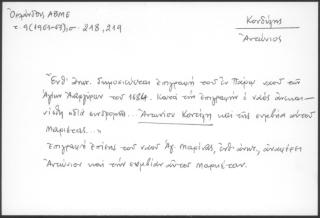 Ὀρλάνδος ΑΒΜΕ
τ. 9 (1961-67), σ. 218, 219
Κονδύλης
Ἀντώνιος
Ἔνθ' ἀνωτ. δημοσιεύεται ἐπιγραφή τοῦ ἐν Πάρῳ ναοῦ τῶν
Ἁγίων Ἀναργύρων τοῦ 1684. Κατά τήν ἐπιγραφήν ὁ ναός
"διά συνδρομῆς... Ἀντωνίου Κονδύλη καί τῆς συμβίας αὐτοῦ
Μαριέτας..."
Ἐπιγραφή ἐπίσης τοῦ ναοῦ Ἁγ. Μαρίνας, ἔνθ' ἀνωτ., ἀναφέρει
Ἀντώνιον καί τήν συμβίαν αὐτοῦ Μαριέταν.